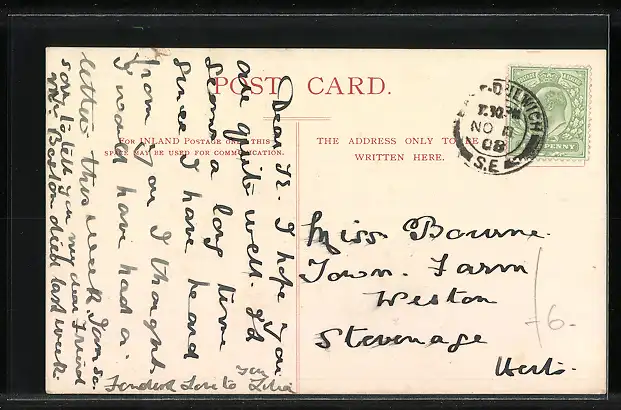 POST CARD.
FOR INLAND POSTAGE ONLY THIS
SPACE MAY BE USED FOR COMMUNICATION.
THE ADDRESS ONLY TO BE
WRITTEN HERE.
DULWICH
NO
08
S.E
PENNY
Miss Bowne.
Town. Farm
Weston
Stevenage
Herts.
6.
Dear I hope you
are quite well.
seems a long time
since I have heard
from you I thought
I would have had a
letter this week I am so
sorry to tell you my dear Friend
Mr. died last week.
Fondest Love to you